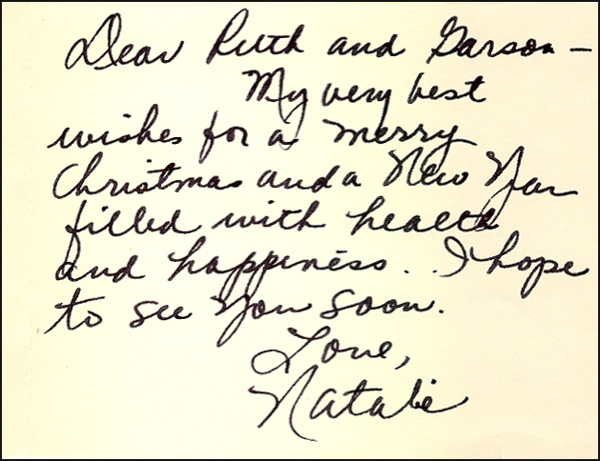 Dear Ruth and Garson —
My very best
wishes for a merry
Christmas and a New Year
filled with health
and happiness.. I hope
to see you soon.
Love,
Natalie